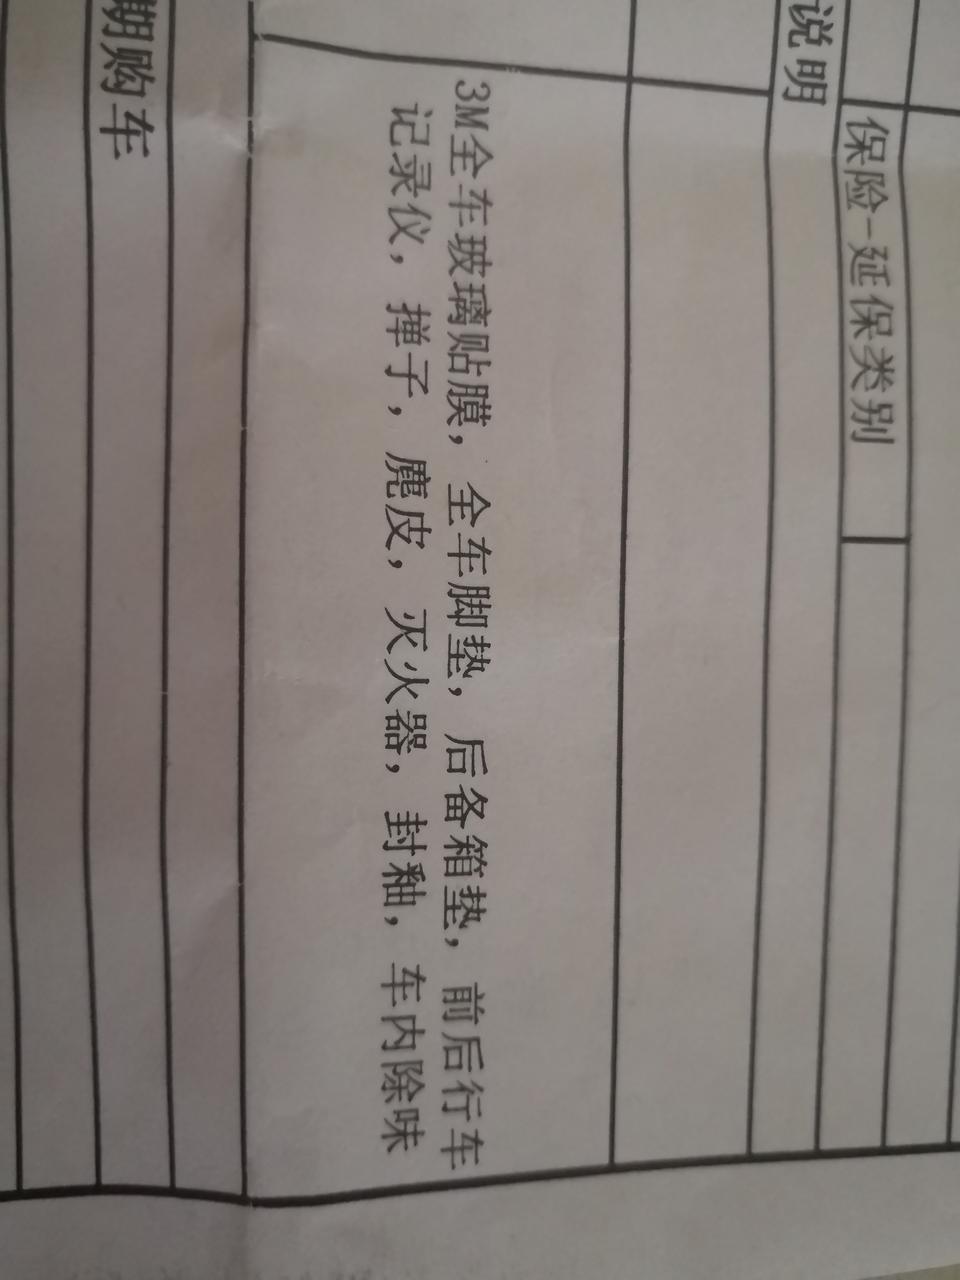 说明
保险-延保类别
3M全车玻璃贴膜，全车脚垫，后备箱垫，前后行车
记录仪，掸子，麂皮，灭火器，封釉，车内除味
期购车